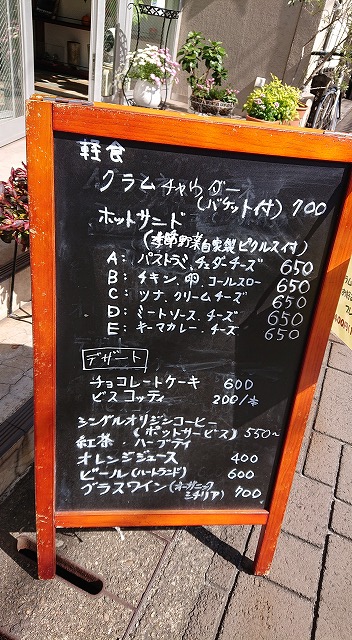 軽食
クラムチャウダー
(バゲット付) 700
ホットサンド
(季節野菜自家製ピクルス付)
A: パストラミ、チェダーチーズ 650
B: チキン、卵、コールスロー 650
C: ツナ、クリームチーズ 650
D: ミートソース、チーズ 650
E: キーマカレー、チーズ 650
デザート
チョコレートケーキ 600
ビスコッティ 200/本
シングルオリジンコーヒー
(ポットサービス) 550~
紅茶、ハーブティ
オレンジジュース 400
ビール(ハートランド) 600
グラスワイン(オーガニック シチリア) 700